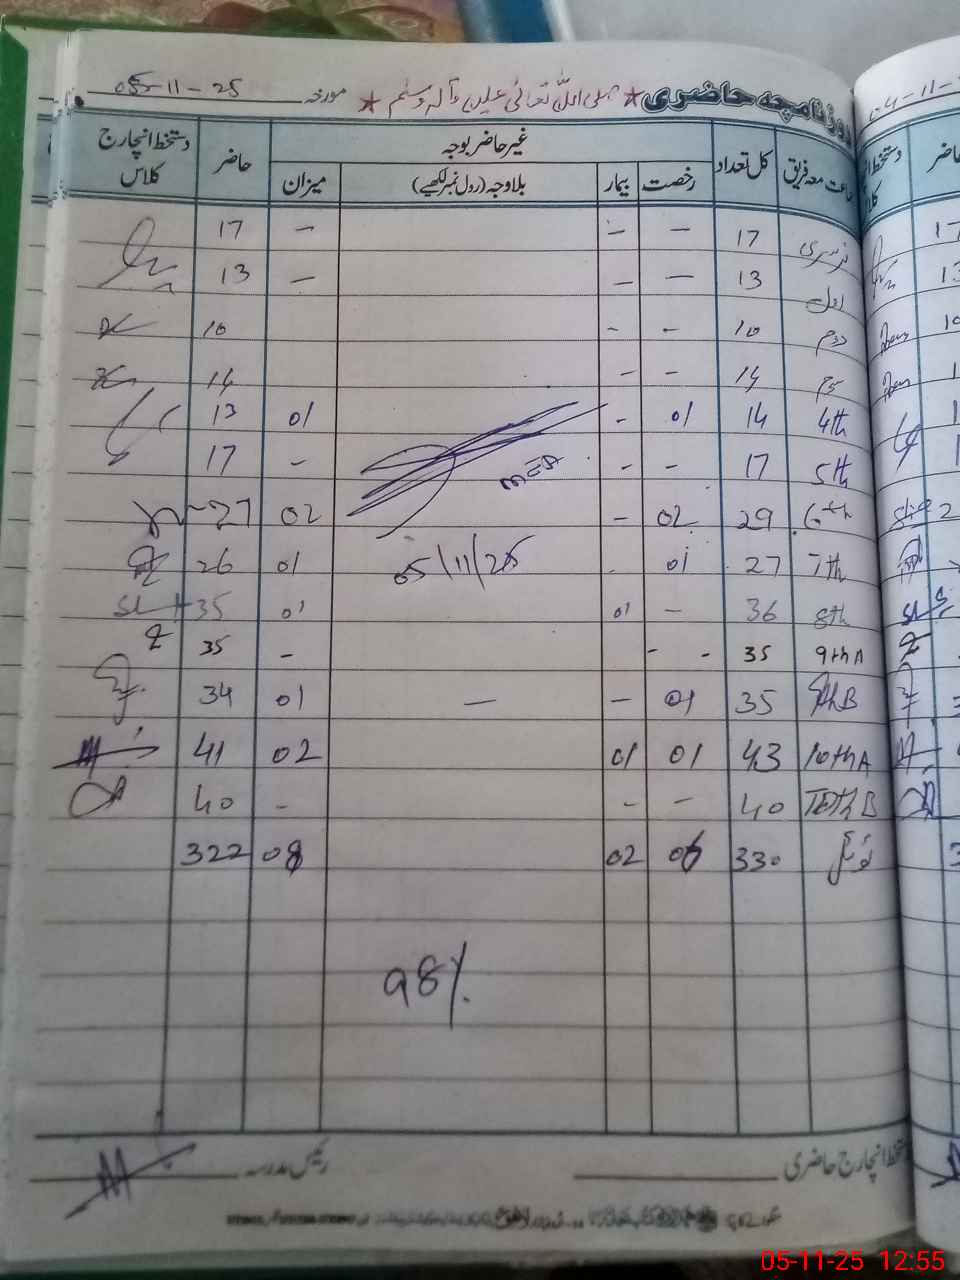 روزنامچہ حاضری ★ صلی اللہ تعالیٰ علیہ وآلہ وسلم ★ مورخہ 05-11-25
جماعت معہ فریق کل تعداد غیر حاضر بوجہ حاضر دستخط انچارج کلاس
رخصت بیمار بلاوجہ (رول نمبر لکھیے) میزان
نرسری 17 - - - 17
اول 13 - - - 13
دوم 10 - - 10
سوم 14 - - 14
4th 14 01 - 01 13
5th 17 - - - 17
6th 29 02 - 02 27
7th 27 01 01 26
8th 36 - 01 01 35
9thA 35 - - - 35
9thB 35 01 - - 01 34
10thA 43 01 01 02 41
10th B 40 - - - 40
ٹوٹل 330 06 02 08 322
MEA
05/11/25
98%
دستخط انچارج حاضری رئیس مدرسہ
04-11-
دستخط حاضر
05-11-25 12:55